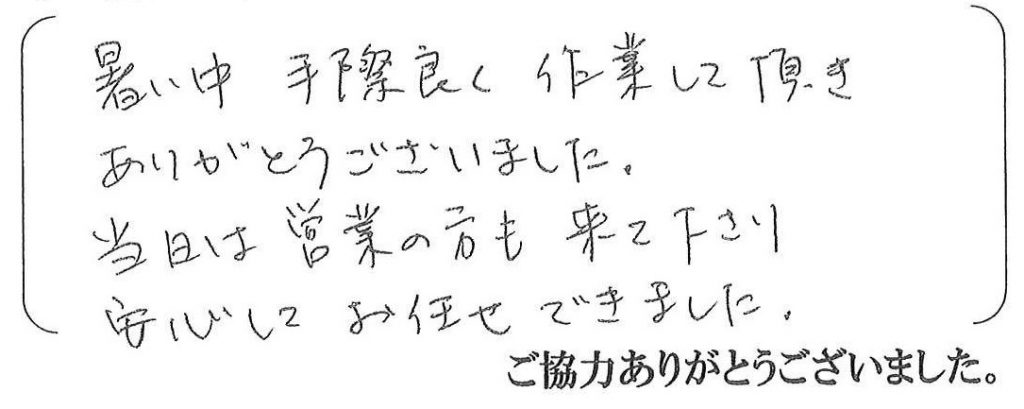 暑い中 手際良く 作業して頂き
ありがとうございました。
当日は営業の方も来て下さり
安心してお任せできました。
ご協力ありがとうございました。